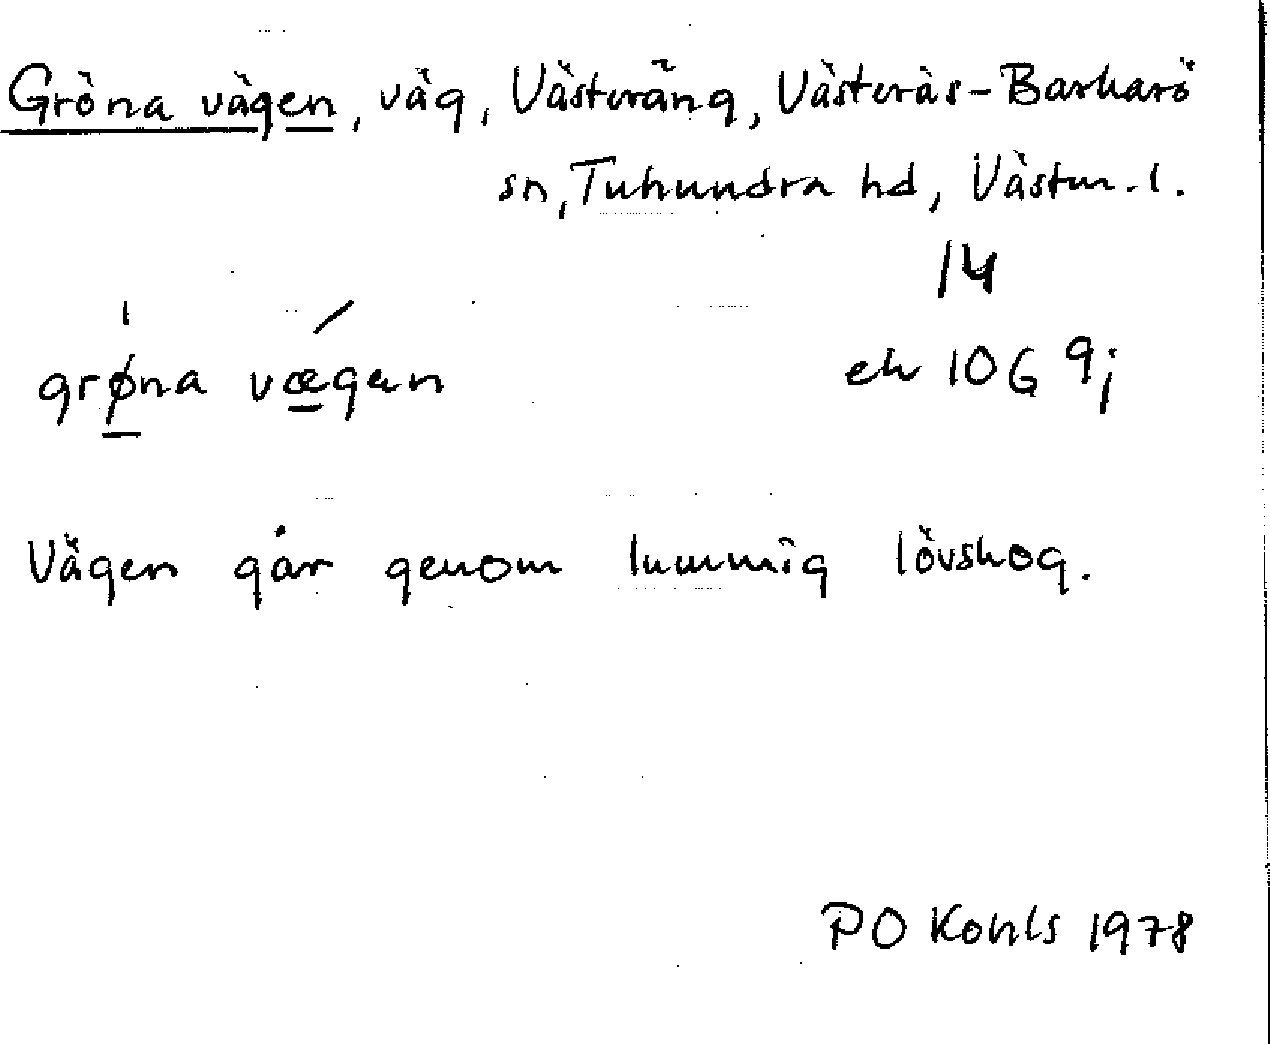 Gröna vägen, väg, Västeräng, Västerås-Barkarö
sn, Tuhundra hd, Västm. l.
14
grøna vægen ek 10G 9j
Vägen går genom lummig lövskog.
PO Kohls 1978